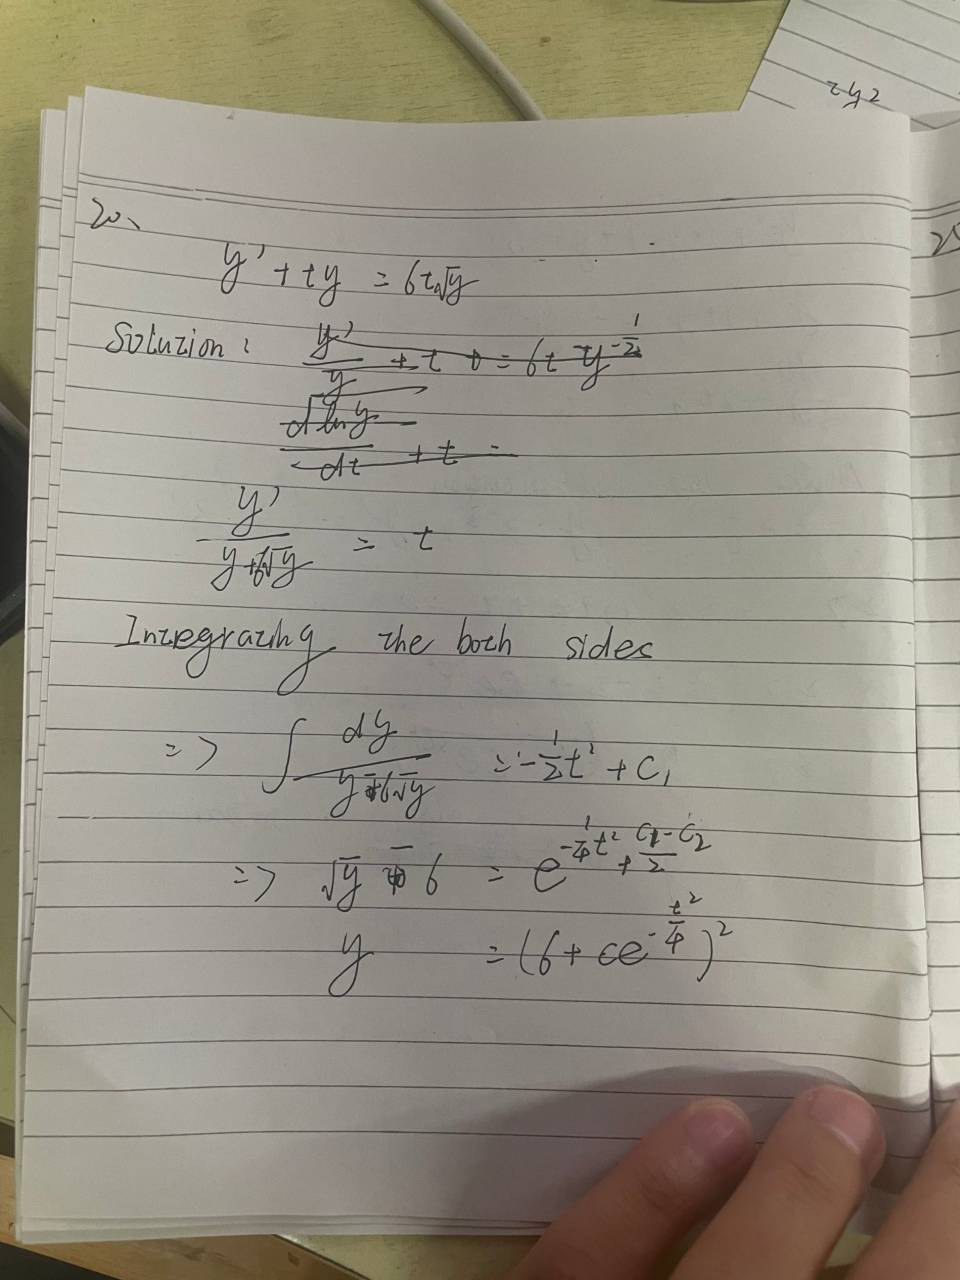 zy2
20、
y' + ty = 6t√y
Solution: y'/y + t = 6t y^{-1/2}
d ln y / dt + t =
y' / (y+6√y) = t
Integrating the both sides
=> ∫ dy / (y-6√y) = -1/2 t² + C₁
=> √y - 6 = e^{-1/4 t² + (C₁-C₂)/2}
y = (6 + ce^{-t²/4})²